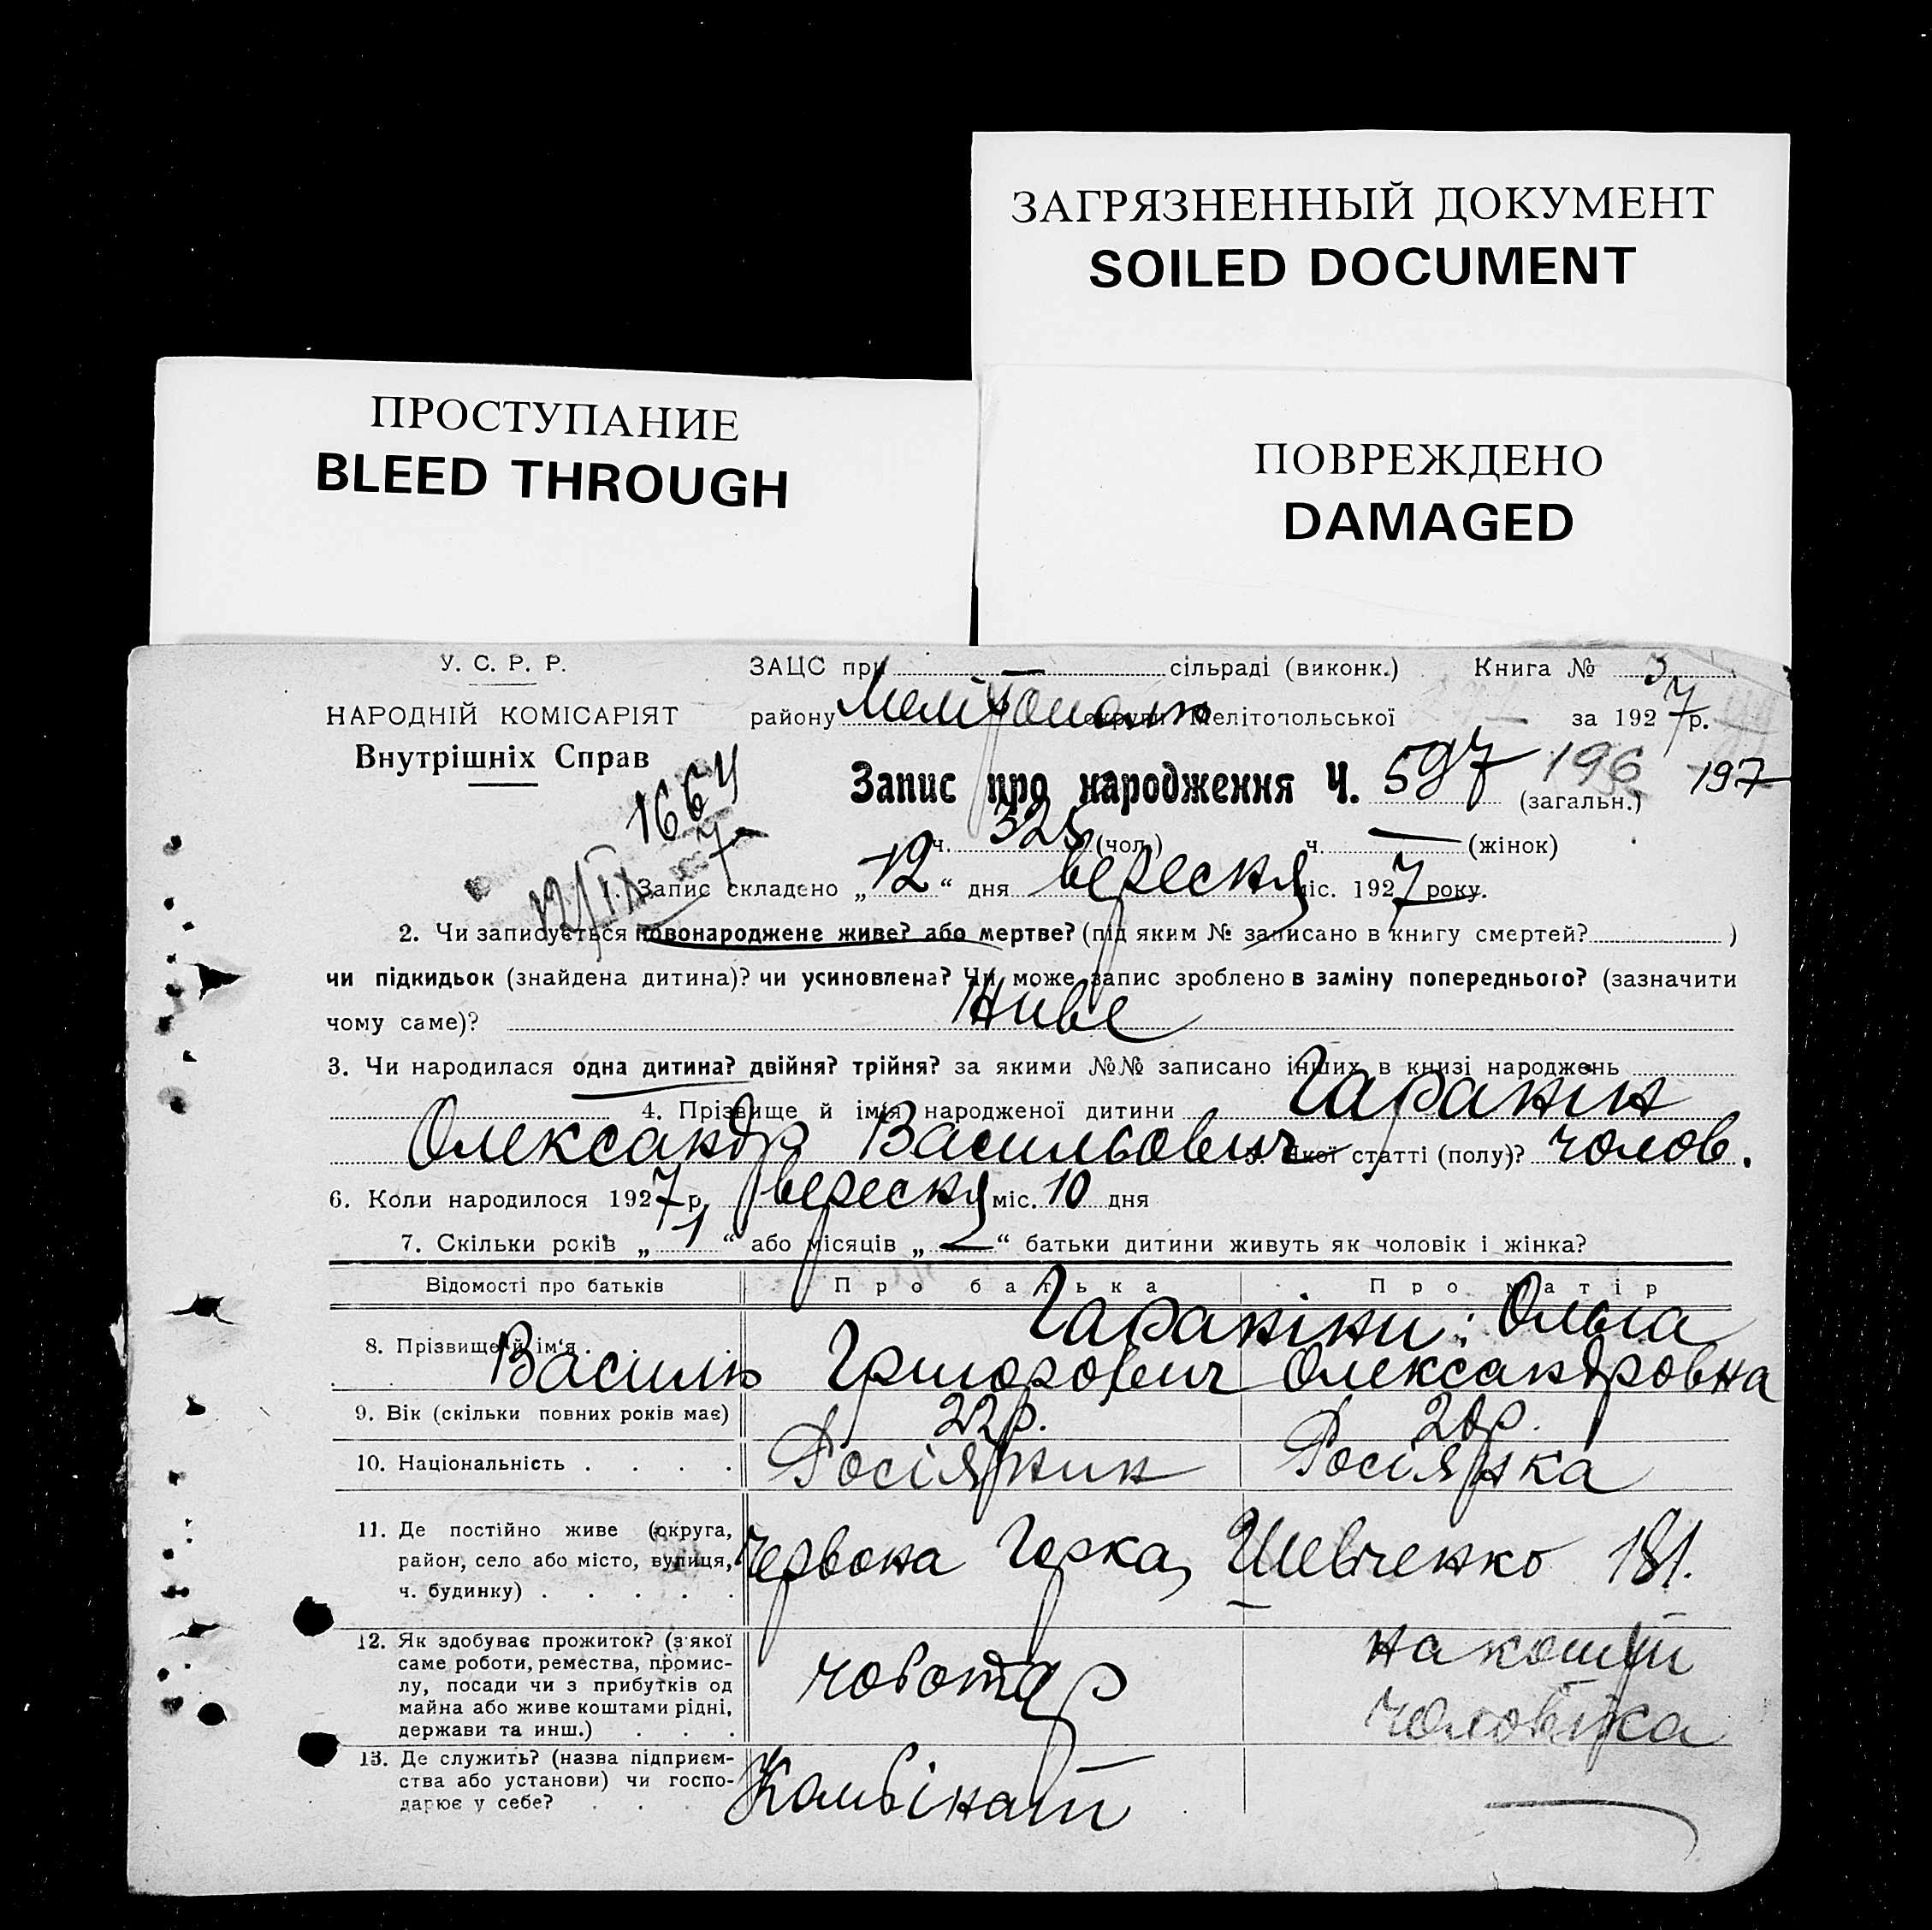 ЗАГРЯЗНЕННЫЙ ДОКУМЕНТ
SOILED DOCUMENT
ПРОСТУПАНИЕ
BLEED THROUGH
ПОВРЕЖДЕНО
DAMAGED
У. С. Р. Р.
НАРОДНІЙ КОМІСАРІЯТ
Внутрішніх Справ
ЗАЦС при — сільраді (виконк.) Книга № 3
району Мелітополь округи Мелітопольської за 1927 р.
1664
12/IX 7
Запис про народження Ч. 597 196 197
(загальн.)
ч. 325 (чол.) ч. — (жінок)
1. Запис складено „12“ дня вересня міс. 1927 року.
2. Чи записується новонароджене живе? або мертве? (під яким № записано в книгу смертей? )
чи підкидьок (знайдена дитина)? чи усиновлена? Чи може запис зроблено в заміну попереднього? (зазначити
чому саме)? Живе
3. Чи народилася одна дитина? двійня? трійня? за якими №№ записано інших в книзі народжень
4. Прізвище й ім'я народженої дитини Гаранін
Олександр Васильович 5. Якої статті (полу)? чолов.
6. Коли народилося 1927 р. вересня міс. 10 дня
7. Скільки років „1“ або місяців „—“ батьки дитини живуть як чоловік і жінка?
Відомості про батьків Про батька Про матір
8. Прізвище й ім'я . Гараніни: Ольга
Василь Григорович Олександровна
9. Вік (скільки повних років має) 22 р. 20 р.
10. Національність . . . . Росіянин Росіянка
11. Де постійно живе (округа,
район, село або місто, вулиця,
ч. будинку) . . . . .
Червона Горка, Шевченко 181.
12. Як здобуває прожиток? (з якої
саме роботи, ремества, промис-
лу, посади чи з прибутків од
майна або живе коштами рідні,
держави та инш.) . . .
чоботар
на кошти
чоловіка
13. Де служить? (назва підприєм-
ства або установи) чи госпо-
дарює у себе? . . .
Комбінат